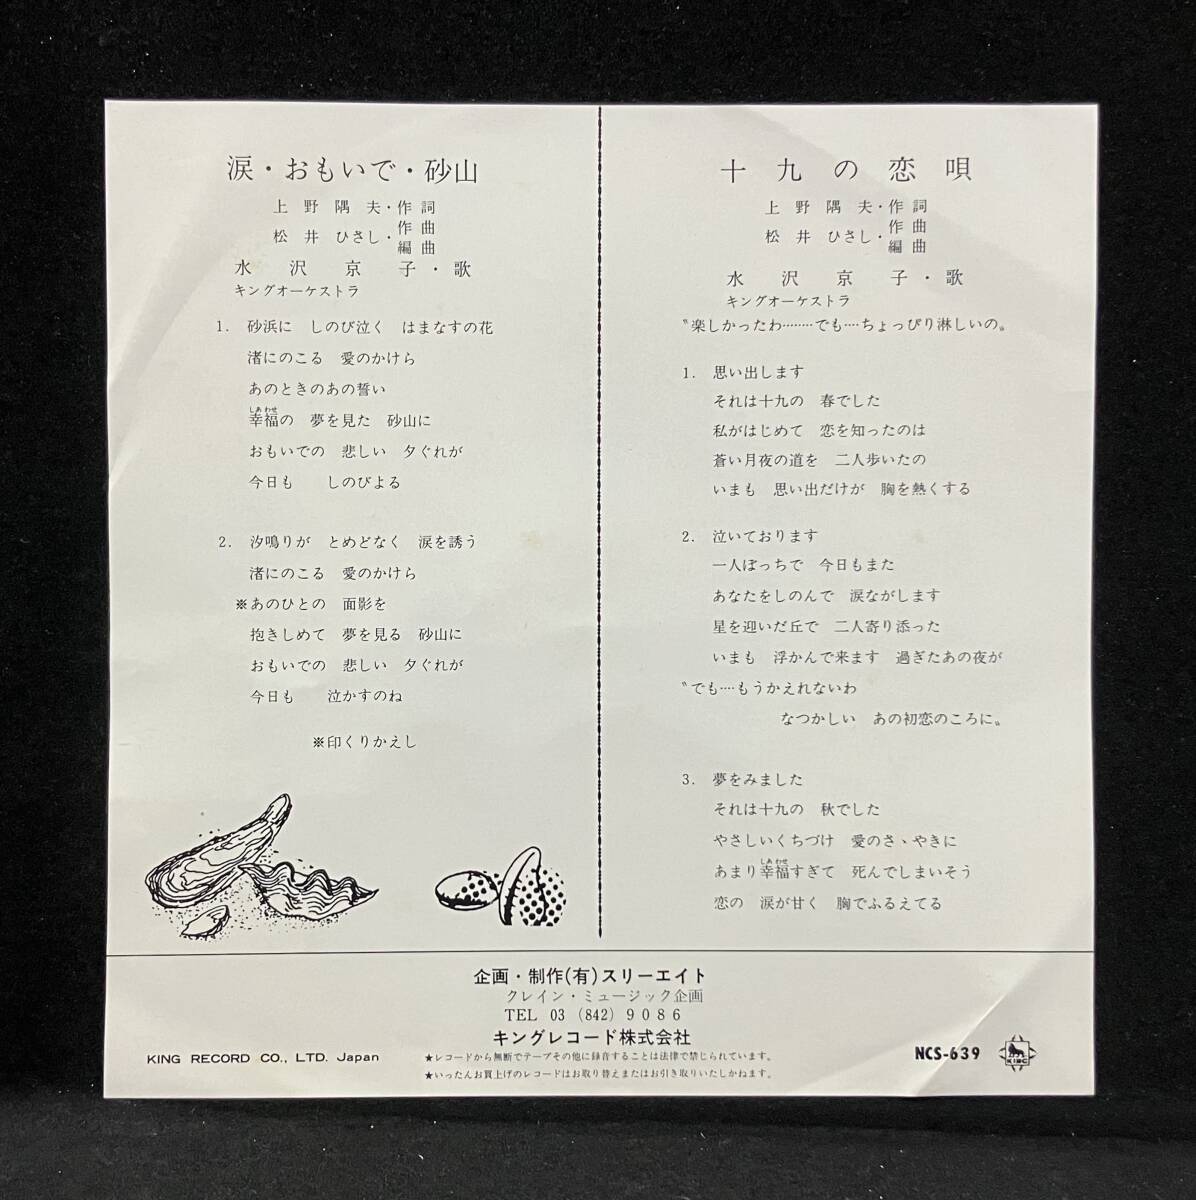 涙・おもいで・砂山
上野隅夫・作詞
松井ひさし・作曲
編曲
水沢京子・歌
キングオーケストラ
1. 砂浜に しのび泣く はまなすの花
渚にのこる 愛のかけら
あのときのあの誓い
しあわせ
幸福の 夢を見た 砂山に
おもいでの 悲しい 夕ぐれが
今日も しのびよる
2. 汐鳴りが とめどなく 涙を誘う
渚にのこる 愛のかけら
※あのひとの 面影を
抱きしめて 夢を見る 砂山に
おもいでの 悲しい 夕ぐれが
今日も 泣かすのね
※印くりかえし
十九の恋唄
上野隅夫・作詞
松井ひさし・作曲
編曲
水沢京子・歌
キングオーケストラ
〝楽しかったわ………でも‥‥ちょっぴり淋しいの。
1. 思い出します
それは十九の 春でした
私がはじめて 恋を知ったのは
蒼い月夜の道を 二人歩いたの
いまも 思い出だけが 胸を熱くする
2. 泣いております
一人ぼっちで 今日もまた
あなたをしのんで 涙ながします
星を迎いだ丘で 二人寄り添った
いまも 浮かんで来ます 過ぎたあの夜が
〝でも‥‥もうかえれないわ
なつかしい あの初恋のころに。
3. 夢をみました
それは十九の 秋でした
やさしいくちづけ 愛のさゝやきに
しあわせ
あまり幸福すぎて 死んでしまいそう
恋の 涙が甘く 胸でふるえてる
企画・制作(有)スリーエイト
クレイン・ミュージック企画
TEL 03 (842) 9086
キングレコード株式会社
KING RECORD CO., LTD. Japan
★レコードから無断でテープその他に録音することは法律で禁じられています。
★いったんお買上げのレコードはお取り替えまたはお引き取りいたしかねます。
NCS-639
KING